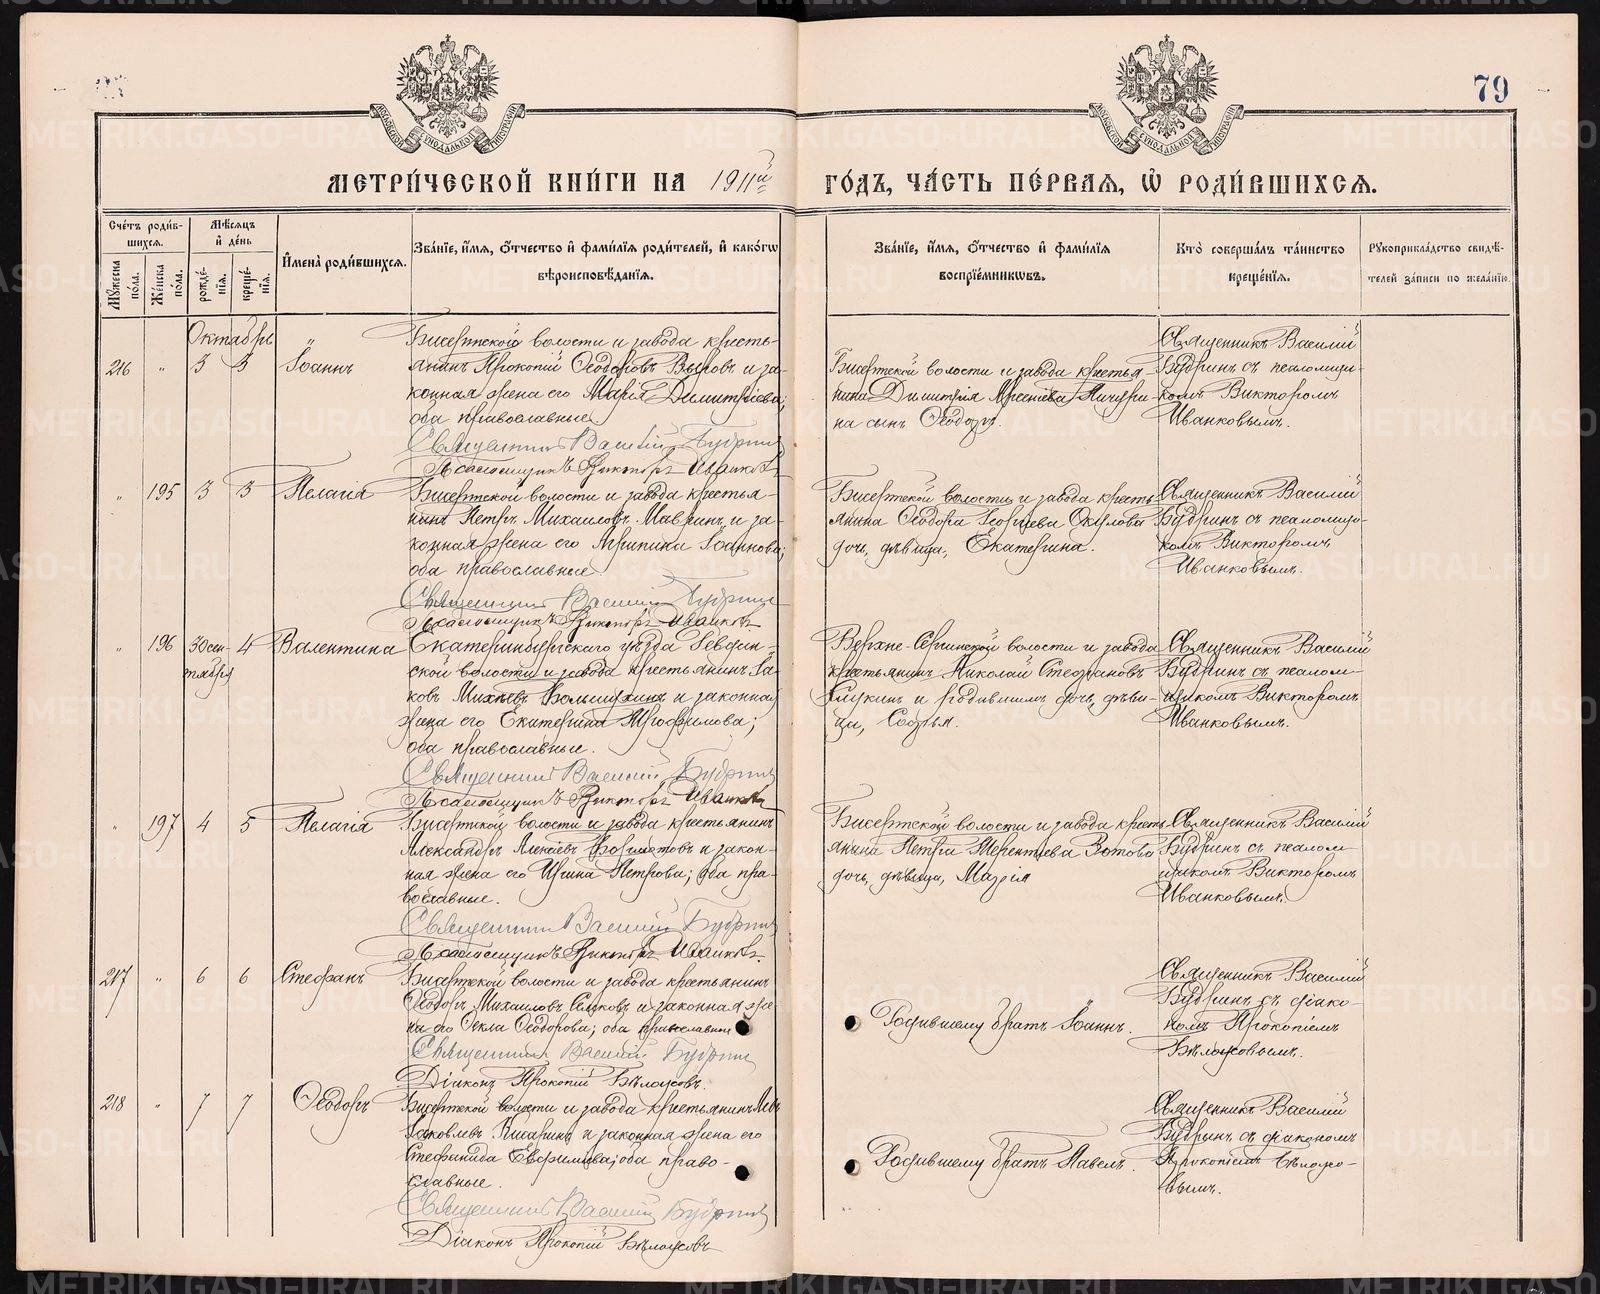 79
МЕТРИ́ЧЕСКОЙ КНИ́ГИ НА 1911й ГО́ДЪ, ЧА́СТЬ ПЕ́РВАЯ, Ѡ҆ РОДИ́ВШИХСЯ.
Сче́тъ роди́вшихся.
Мꙋ́жеска по́ла.
Же́нска по́ла.
Мѣ́сяцъ и҆ де́нь
рожде́нїя.
креще́нїя.
И҆мена̀ роди́вшихся.
Зва́нїе, и҆́мя, ѻ҆́тчество и҆ фами́лїя роди́телей, и҆ како́гѡ
вѣроисповѣ́данїя.
Зва́нїе, и҆́мя, ѻ҆́тчество и҆ фами́лїя
воспрїе́мникѡвъ.
Кто̀ соверша́лъ та́инство
креще́нїя.
Рꙋкоприкла́дство свидѣ́телей за́писи по жела́нїю.
Октабрь
216 " 3 3 Іоаннъ
Бисертской волости и завода кресть-
янинъ Прокопій Ѳеодоровъ Выровъ и за-
конная жена его Марія Димитріева;
оба православные
Священникъ Василій Будринъ
Псаломщикъ Викторъ Иванковъ
Бисертской волости и завода крестья-
нина Димитрія Арсеніева Мичури-
на сынъ Ѳеодоръ.
Священникъ Василій
Будринъ съ псаломщи-
комъ Викторомъ
Иванковымъ.
" 195 3 3 Пелагія
Бисертской волости и завода крестья-
нинъ Петръ Михаиловъ Мавринъ и за-
конная жена его Агрипина Іоаннова;
оба православные
Священникъ Василій Будринъ
Псаломщикъ Викторъ Иванковъ
Бисертской волости и завода кресть
янина Ѳеодора Георгіева Окулова
дочь, дѣвица, Екатерина.
Священникъ Василій
Будринъ съ псаломщи-
комъ Викторомъ
Иванковымъ.
" 196 30 сен-
тября 4 Валентина
Екатеринбургскаго уѣзда Ревдин-
ской волости и завода крестьянинъ Іа-
ковъ Михѣевъ и законная
жена его Екатерина Трофимова;
оба православные.
Священникъ Василій Будринъ
Псаломщикъ Викторъ Иванковъ
Верхне-Сергинской волости и завода
крестьянинъ Николай Стефановъ
и родившимъ дочь, дѣви-
ца, Софья.
Священникъ Василій
Будринъ съ псалом-
щикомъ Викторомъ
Иванковымъ.
" 197 4 5 Пелагія
Бисертской волости и завода крестьянинъ
Александръ Алексѣевъ и закон-
ная жена его Ирина Петрова; оба пра-
вославные.
Священникъ Василій Будринъ
Псаломщикъ Викторъ Иванковъ.
Бисертской волости и завода кресть
янина Петра Терентіева Зотова
дочь, дѣвица, Марія
Священникъ Василій
Будринъ съ псалом-
щикомъ Викторомъ
Иванковымъ.
217 " 6 6 Стефанъ
Бисертской волости и завода крестьянинъ
Ѳеодоръ Михаиловъ и законная же-
на его Ѳекла Ѳеодорова; оба православные
Священникъ Василій Будринъ
Діаконъ Прокопій Бѣлоусовъ.
Родившему братъ Іоаннъ.
Священникъ Василій
Будринъ съ діако-
номъ Прокопіемъ
Бѣлоусовымъ.
218 " 7 7 Ѳеодоръ
Бисертской волости и завода крестьянинъ Левъ
Іаковлевъ и законная жена его
Стефанида Евфимиева; оба право-
славные.
Священникъ Василій Будринъ
Діаконъ Прокопій Бѣлоусовъ
Родившему братъ Павелъ.
Священникъ Василій
Будринъ съ діакономъ
Прокопіемъ Бѣлоусо-
вымъ.